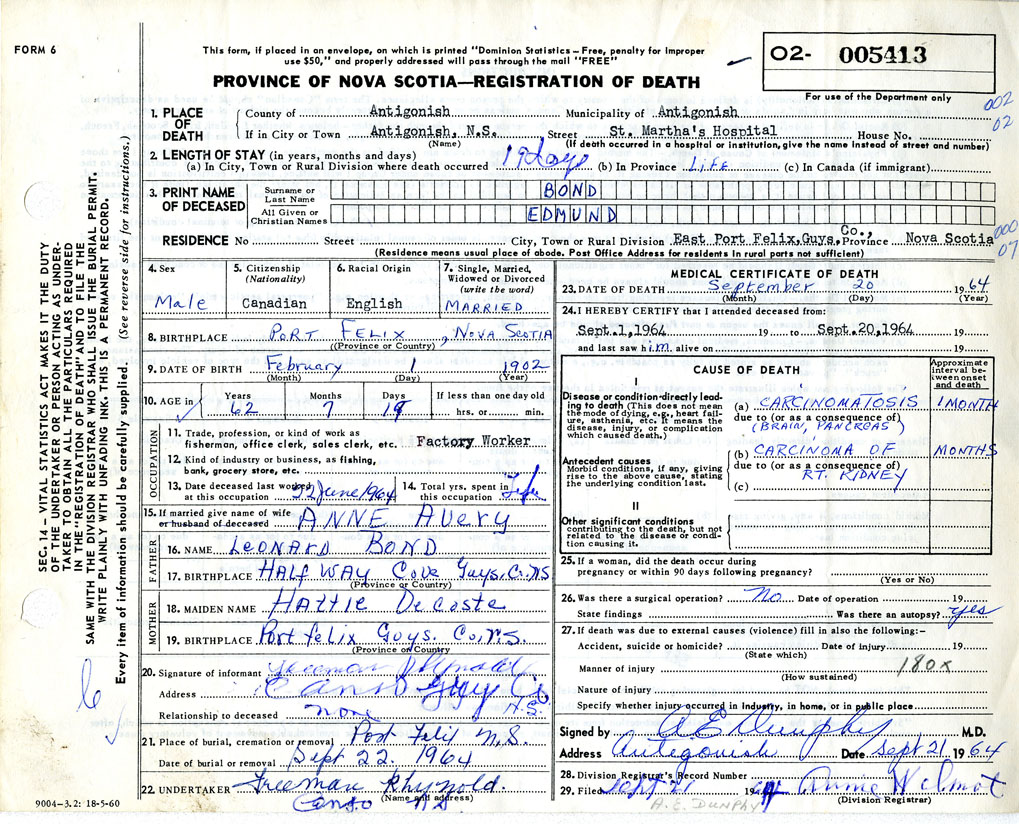 FORM 6
This form, if placed in an envelope, on which is printed "Dominion Statistics – Free, penalty for improper
use $50," and properly addressed will pass through the mail "FREE"
PROVINCE OF NOVA SCOTIA—REGISTRATION OF DEATH
O2- 005413
For use of the Department only
002
02
1. PLACE OF DEATH
County of Antigonish Municipality of Antigonish
If in City or Town Antigonish, N.S. Street St. Martha's Hospital House No.
(Name) (If death occurred in a hospital or institution, give the name instead of street and number)
2. LENGTH OF STAY (in years, months and days)
(a) In City, Town or Rural Division where death occurred 19 days (b) In Province Life (c) In Canada (if immigrant)
3. PRINT NAME OF DECEASED
Surname or Last Name BOND
All Given or Christian Names EDMUND
RESIDENCE No Street City, Town or Rural Division East Port Felix, Guys. Co., Province Nova Scotia
000
07
(Residence means usual place of abode. Post Office Address for residents in rural parts not sufficient)
4. Sex Male
5. Citizenship (Nationality) Canadian
6. Racial Origin English
7. Single, Married, Widowed or Divorced (write the word) MARRIED
8. BIRTHPLACE PORT FELIX, NOVA SCOTIA
(Province or Country)
9. DATE OF BIRTH February 1 1902
(Month) (Day) (Year)
10. AGE in Years Months Days If less than one day old
62 7 19 hrs. or min.
OCCUPATION
11. Trade, profession, or kind of work as
fisherman, office clerk, sales clerk, etc. Factory Worker
12. Kind of industry or business, as fishing,
bank, grocery store, etc.
13. Date deceased last worked at this occupation June/64
14. Total yrs. spent in this occupation Life
15. If married give name of wife or husband of deceased ANNE AVERY
FATHER
16. NAME LEONARD BOND
17. BIRTHPLACE HALF WAY Cove Guys. Co. NS
(Province or Country)
MOTHER
18. MAIDEN NAME HATTIE DeCoste
19. BIRTHPLACE Port felix Guys. Co. N.S.
(Province or Country)
20. Signature of informant Freeman Rhynold
Address Canso Guy Co
N.S.
Relationship to deceased none
21. Place of burial, cremation or removal Port Felix N.S.
Date of burial or removal Sept 22 1964
22. UNDERTAKER Freeman Rhynold
(Name and address)
Canso NS
9004–3.2: 18-5-60
MEDICAL CERTIFICATE OF DEATH
23. DATE OF DEATH September 20 1964
(Month) (Day) (Year)
24. I HEREBY CERTIFY that I attended deceased from:
Sept.1,1964 19 to Sept.20,1964 19
and last saw him alive on 19
CAUSE OF DEATH
Approximate interval between onset and death
I
Disease or condition directly leading to death (This does not mean the mode of dying, e.g., heart failure, asthenia, etc. It means the disease, injury, or complication which caused death.)
(a) CARCINOMATOSIS 1 MONTH
due to (or as a consequence of)
(BRAIN, PANCREAS)
Antecedent causes
Morbid conditions, if any, giving rise to the above cause, stating the underlying condition last.
(b) CARCINOMA OF MONTHS
due to (or as a consequence of)
RT. KIDNEY
(c)
II
Other significant conditions
contributing to the death, but not related to the disease or condition causing it.
25. If a woman, did the death occur during
pregnancy or within 90 days following pregnancy?
(Yes or No)
26. Was there a surgical operation? No Date of operation 19
State findings Was there an autopsy? yes
27. If death was due to external causes (violence) fill in also the following:–
Accident, suicide or homicide? Date of injury 19
(State which)
Manner of injury 180X
(How sustained)
Nature of injury
Specify whether injury occurred in industry, in home, or in public place
Signed by A E Dunphy M.D.
Address Antigonish Date Sept 21 1964
28. Division Registrar's Record Number
29. Filed Sept 21 1964 Annie Wilmot
(Division Registrar)
A. E. DUNPHY
SEC. 14 – VITAL STATISTICS ACT MAKES IT THE DUTY
OF THE UNDERTAKER OR PERSON ACTING AS UNDER-
TAKER TO OBTAIN ALL THE PARTICULARS REQUIRED
IN THE "REGISTRATION OF DEATH" AND TO FILE THE
SAME WITH THE DIVISION REGISTRAR WHO SHALL ISSUE THE BURIAL PERMIT.
WRITE PLAINLY WITH UNFADING INK. THIS IS A PERMANENT RECORD.
Every item of information should be carefully supplied. (See reverse side for instructions.)